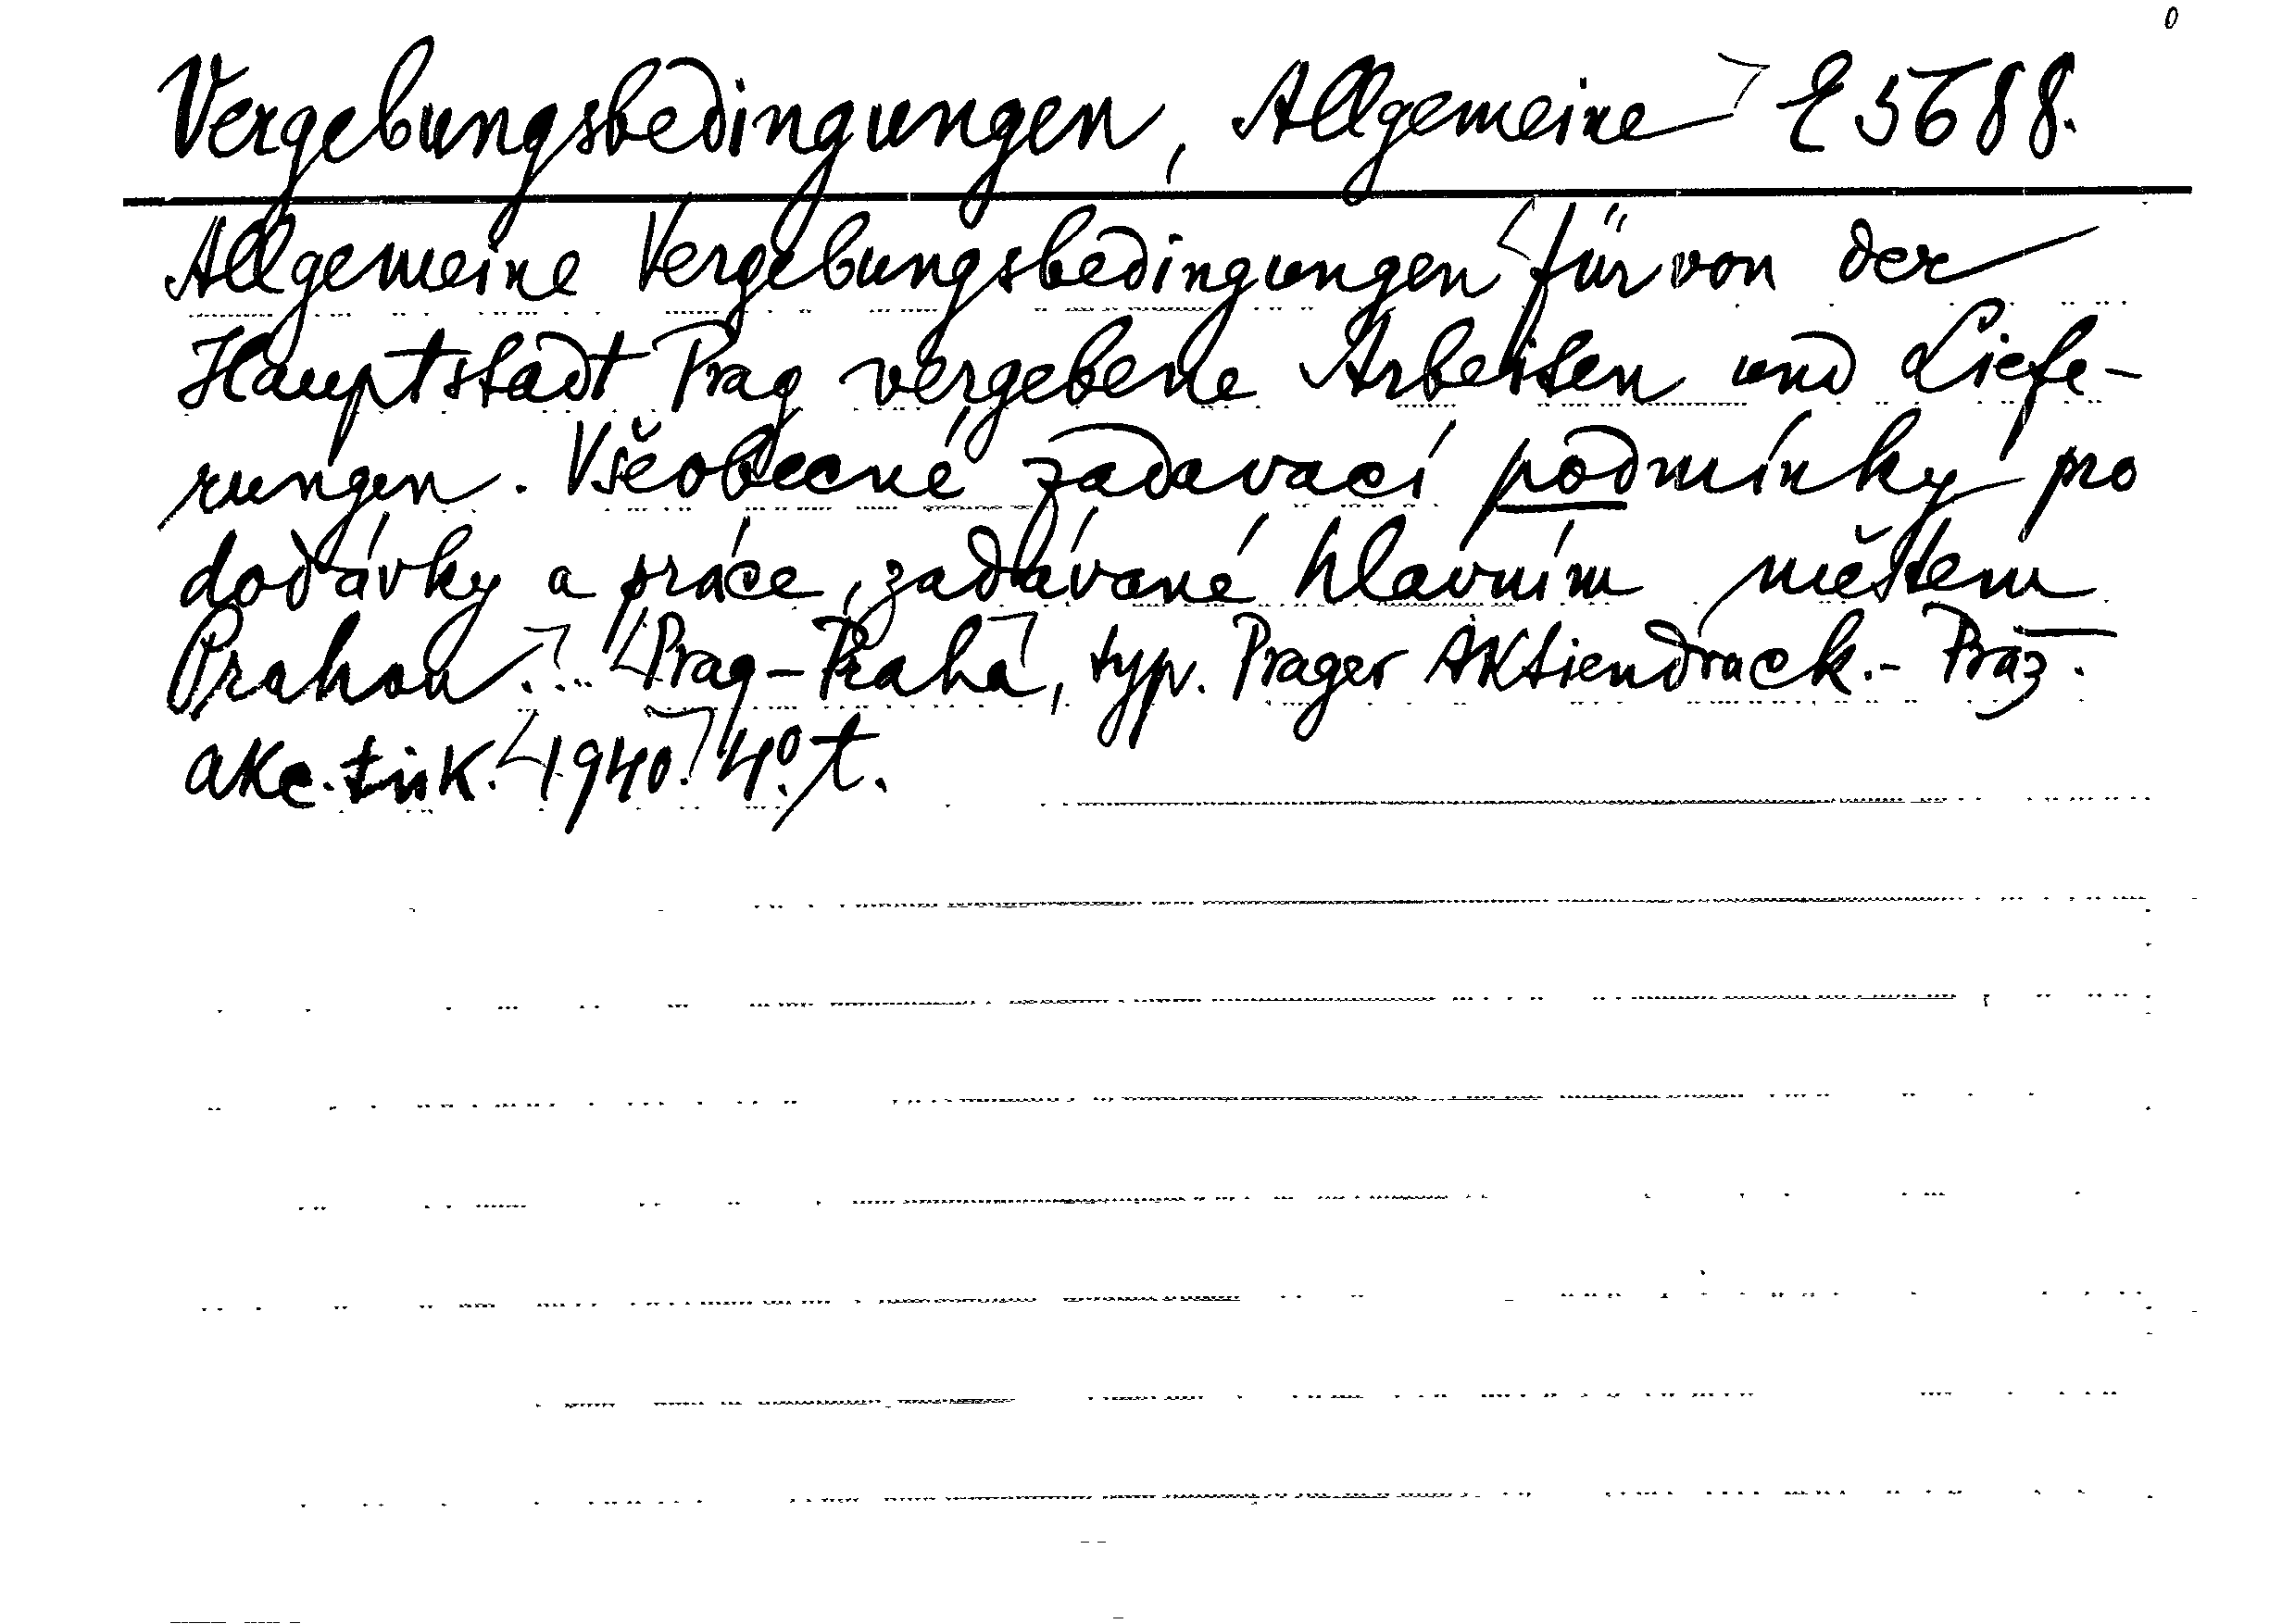 Vergebungsbedingungen, Allgemeine E 5688.
Allgemeine Vergebungsbedingungen für von der
Hauptstadt Prag vergebene Arbeiten und Liefe-
rungen. Všeobecné zadavací podmínky pro
dodávky a práce, zadávané hlavním městem
Prahou ... Prag-Praha, typ. Prager Aktiendruck.- Praž.
akc. tisk. 1940. 4°. t.